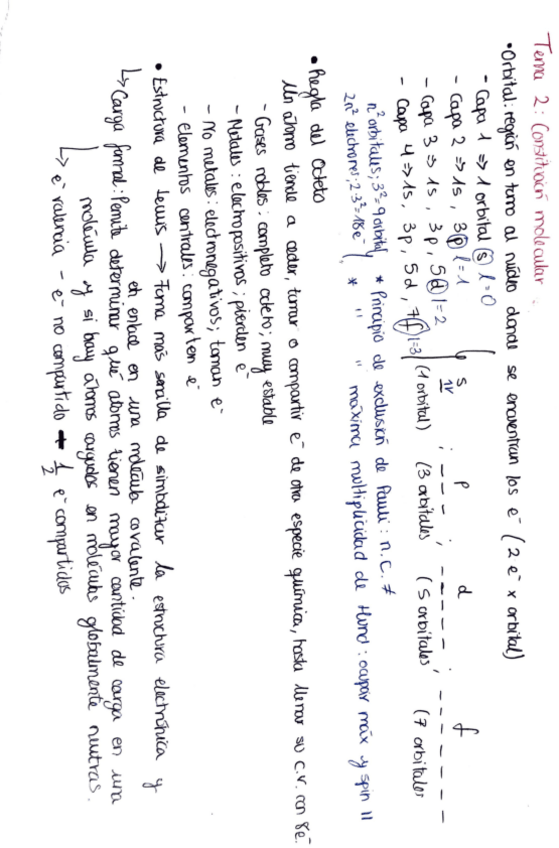 Tema 2: Constitución molecular
• Orbital: región en torno al núcleo donde se encuentran los e⁻ (2 e⁻ x orbital)
- Capa 1 ⇒ 1 orbital s l=0
- Capa 2 ⇒ 1s, 3p l=1
- Capa 3 ⇒ 1s, 3p, 5d l=2
- Capa 4 ⇒ 1s, 3p, 5d, 7f l=3
s p d f
1v ; _ _ _ ; _ _ _ _ _ ; _ _ _ _ _ _ _
(1 orbital) (3 orbitales (5 orbitales (7 orbitales
n² orbitales; 3²=9 orbital * Principio de exclusión de Pauli: n.c. ≠
2n² electrones; 2·3²=18e⁻ * " " máxima multiplicidad de Hund: ocupar máx y spin ||
• Regla del Octeto
Un átomo tiende a ceder, tomar o compartir e⁻ de otra especie química, hasta llenar su c.v. con 8e⁻.
- Gases nobles: completo octeto; muy estable
- Metales: electropositivos; pierden e⁻
- No metales: electronegativos; toman e⁻
- Elementos centrales: comparten e⁻
• Estructura de Lewis → Forma más sencilla de simbolizar la estructura electrónica y
el enlace en una molécula covalente.
↳ Carga formal: Permite determinar qué átomos tienen mayor cantidad de carga en una
molécula y si hay átomos cargados en moléculas globalmente neutras.
↳ e⁻ valencia - e⁻ no compartido + 1/2 e⁻ compartidos